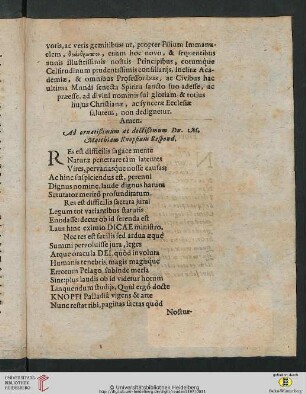 votis, ac veris gemitibus ut, propter Filium Immanu-
elem, θεάνθρωπον, etiam hoc novo, & sequentibus
annis Illustrissimis nostris Principibus, eorumque
Celsitudinum prudentissimis consiliarijs, inclitæ Aca-
demiæ, & omnibus Professoribus, ac Civibus hac
ultima Mundi senecta Spiritu sancto suo adesse, ac
præesse, ad divini nominis sui gloriam & totius
hujus Christianæ, ac syncerae Ecclesiæ
salutem, non dedignetur.
Amen.
Ad ornatissimum ac doctissimum Dn. M.
Matthiam Knopfium Respond.
RES est difficilis sagace mente
Naturæ penetrare tàm latentes
Vires, pervariasque nosse caussas
Ac hinc suspiciendus est, perenni
Dignus nomine, laude dignus harum
Scrutator meritò profunditatum.
Res est difficilis sacrata jura
Legum tot variantibus statutis
Enodasse: decus ob id serenda est
Laus hinc eximio DICAE ministro.
Nec res est facilis sed ardua æquè
Summi pervoluisse jura, leges
Atque oracula DEI, quòd involuta
Humanis tenebris, magis magisque
Errorum Pelago, subinde mersa
Sine plus laudis ob id videtur horum
Languendum studijs. Quid ergò docte
KNOPFI Palladiâ vigens & arte
Nunc restat tibi, paginas sacras quòd
Noctur-
UNIVERSITÄTS-
BIBLIOTHEK
HEIDELBERG
© Universitätsbibliothek Heidelberg
gefördert durch
Baden-Württemberg